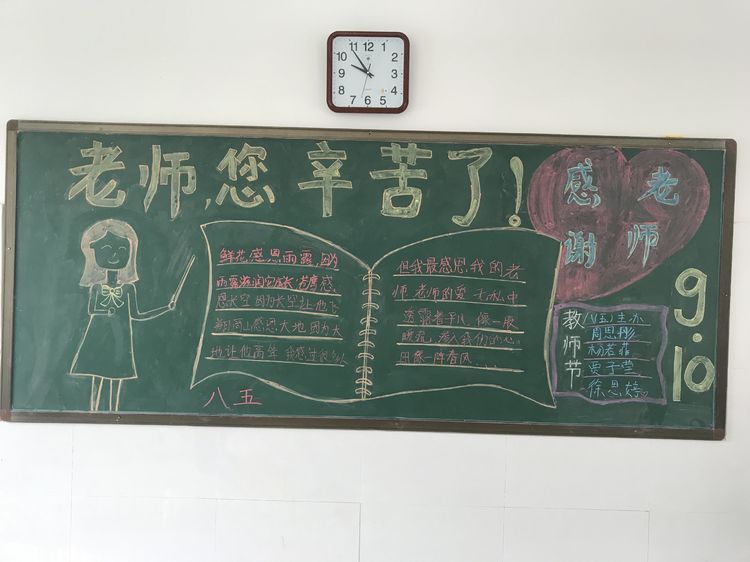 11 12 1
10 2
9 3
8 4
7 6 5
老师,您辛苦了!
感谢
老师
鲜花感恩雨露,因为
雨露滋润它成长,苍鹰感
恩长空 因为长空让他飞
高山感恩大地 因为大
地让他高耸 我感恩很多人
但我最感恩我的老
师 老师的爱 无私中
透露着平凡 像一股
暖流,渗入我们的心
田像一阵春风
八五
教师节
八五主办
周思彤
杨若菲
贾子莹
徐恩婷
9.10